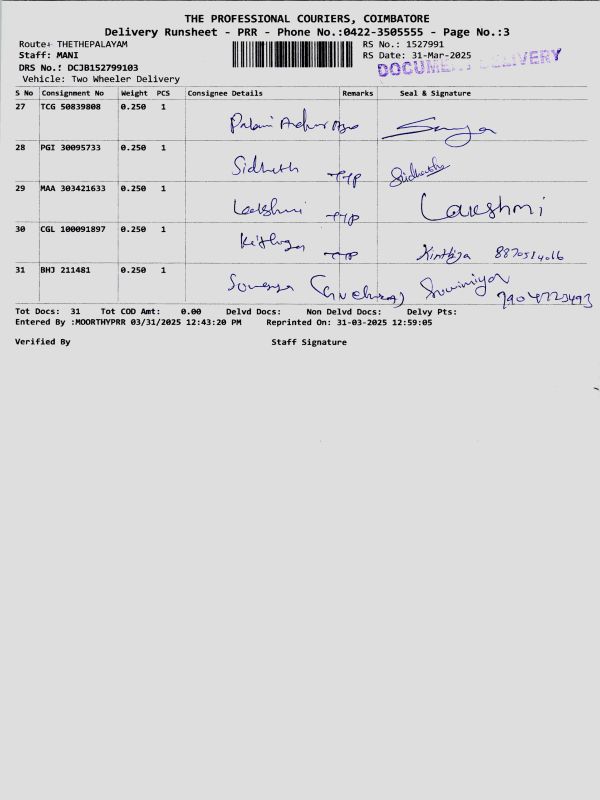 THE PROFESSIONAL COURIERS, COIMBATORE
Delivery Runsheet - PRR - Phone No.:0422-3505555 - Page No.:3
Route+ THETHEPALAYAM RS No.: 1527991
Staff: MANI RS Date: 31-Mar-2025
DRS No.: DCJB152799103 DOCUMENT DELIVERY
Vehicle: Two Wheeler Delivery
S No Consignment No Weight PCS Consignee Details Remarks Seal & Signature
27 TCG 50839808 0.250 1
28 PGI 30095733 0.250 1
Sidharth TYP
29 MAA 303421633 0.250 1
TYP Lakshmi
30 CGL 100091897 0.250 1
TYP 8870514016
31 BHJ 211481 0.250 1
Tot Docs: 31 Tot COD Amt: 0.00 Delvd Docs: Non Delvd Docs: Delvy Pts:
Entered By :MOORTHYPRR 03/31/2025 12:43:20 PM Reprinted On: 31-03-2025 12:59:05
Verified By Staff Signature